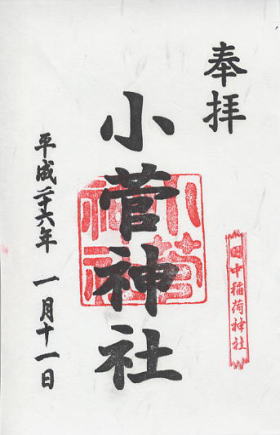 奉拝
小菅神社
小菅神社
田中稲荷神社
平成二十六年 一月十一日